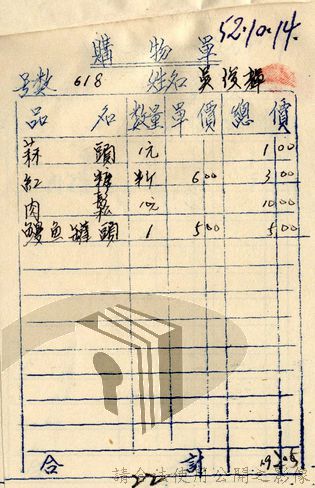 52.10.14.
購物單
號數 618 姓名 吳俊輝
品名 數量 單價 總價
蒜頭 1元 1 00
紅糖 半斤 6 00 3 00
肉鬆 10元 10 00
鰻魚罐頭 1 5 00 5 00
合計 19
請合法使用公開之影像